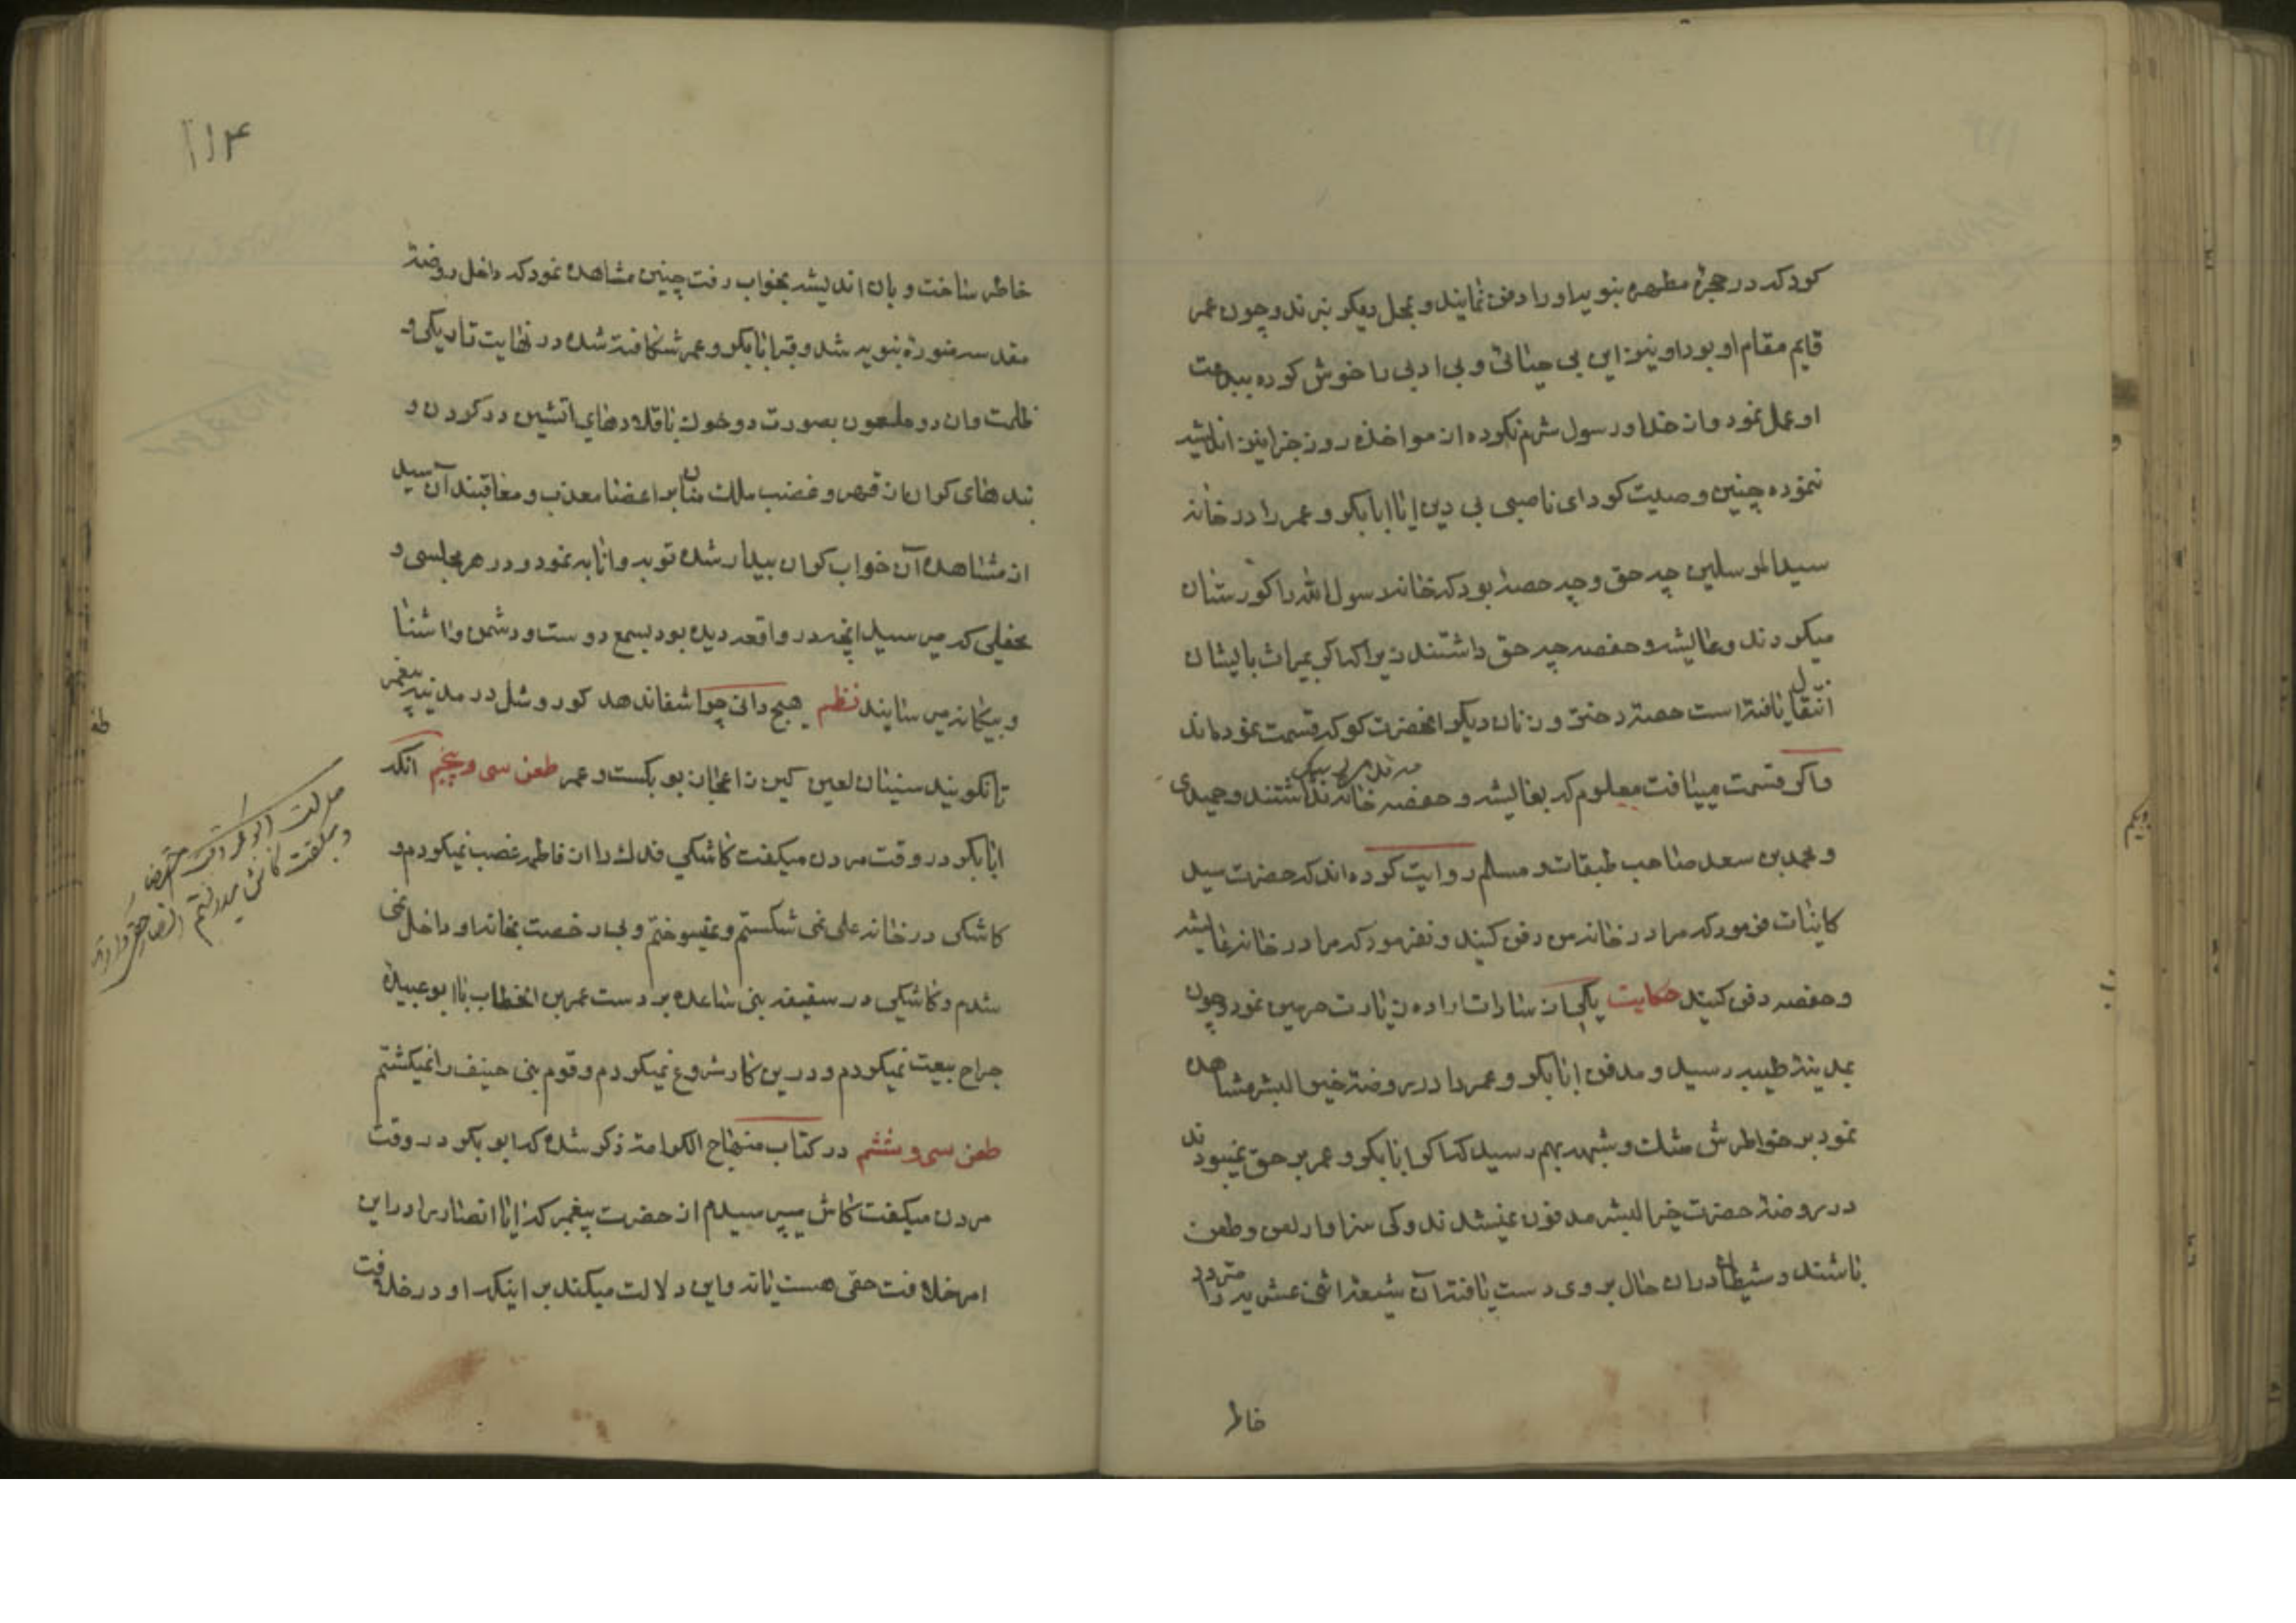 کرد که در حجرهٔ مطهرهٔ نبویه او را دفن نمایند و بمحل دیگر نبرند و چون عمر
قایم مقام او بود او نیز این بی حیائی و بی ادبی را خوش کرده ببدعت
او عمل نمود و از خدا و رسول شرم نکرده از مواخذه روز جزا نیز اندیشه
ننموده چنین وصیت کرد ای ناصبی بی دین ایا ابابکر و عمر را در خانه
سید المرسلین چه حق و چه حصه بود که خانه رسول الله را کورستان
میکردند و عایشه و حفصه چه حق داشتند زیرا که اگر بمیراث بایشان
انتقال یافته است حصه دختر و زنان دیگر انحضرت کو که قسمت نموده اند
و اگر قسمت مییافت معلوم که بعایشه و حفصه خانه نداشتند و حمیدی
و محمد بن سعد صاحب طبقات و مسلم روایت کرده اند که حضرت سید
کاینات فرمود که مرا در خانه من دفن کنید و نفرمود که مرا در خانه عایشه
و حفصه دفن کنید حکایت یکی از سادات اراده زیارت حرمین نمود و چون
بمدینهٔ طیبه رسید و مدفن ابابکر و عمر را در روضهٔ خیر البشر مشاهده
نمود بر خواطرش شک و شبهه بهم رسید که اگر ابابکر و عمر بر حق نمیبودند
در روضهٔ حضرت خیر البشر مدفون نمیشدند و کی سزاوار لعن و طعن
باشند و شیطان دران حال بر وی دست یافته آن شیعهٔ اثنی عشریه را متردد
خاطر
۱۱۴
خاطر ساخت و بان اندیشه بخواب رفت چنین مشاهده نمود که داخل روضهٔ
مقدسه منورهٔ نبویه شد و قبر ابابکر و عمر شکافته شده در نهایت تاریکی و
ظلمت و ان دو ملعون بصورت دو خوک با قلادهای اتشین در کردن و
بندهای کران از قهر و غضب ملک منان بر اعضا معذب و معاقبند آن سید
از مشاهدهٔ آن خواب کران بیدار شده توبه و انابه نمود و در هر مجلسی و
محفلی که میرسید انچه در واقعه دیده بود بسمع دوست و دشمن و اشنا
و بیکانه میرسانید نظم هیچ دانی چرا شفا ندهد کور و شل در مدینه پیغمبر
تا نکویند سنیان لعین کین ز اعجاز بوبکرست و عمر طعن سی و پنجم انکه
ابابکر در وقت مردن میکفت کاشکی فدک را از فاطمه غصب نمیکردم و
کاشکی در خانه علی نمی شکستم و نمیسوختم و بی رخصت بخانه او داخل نمی
شدم و کاشکی در سقیفه بنی ساعده بر دست عمر بن الخطاب یا ابو عبیدهٔ
جراح بیعت نمیکردم و درین کار شروع نمیکردم و قوم بنی حنیف را نمیکشتم
طعن سی و ششم در کتاب منهاج الکرامة ذکر شده که ابوبکر در وقت
مردن میکفت کاش میپرسیدم از حضرت پیغمبر که ایا انصار را در این
امر خلافت حقی هست یا نه و این دلالت میکند بر اینکه او در خلافت